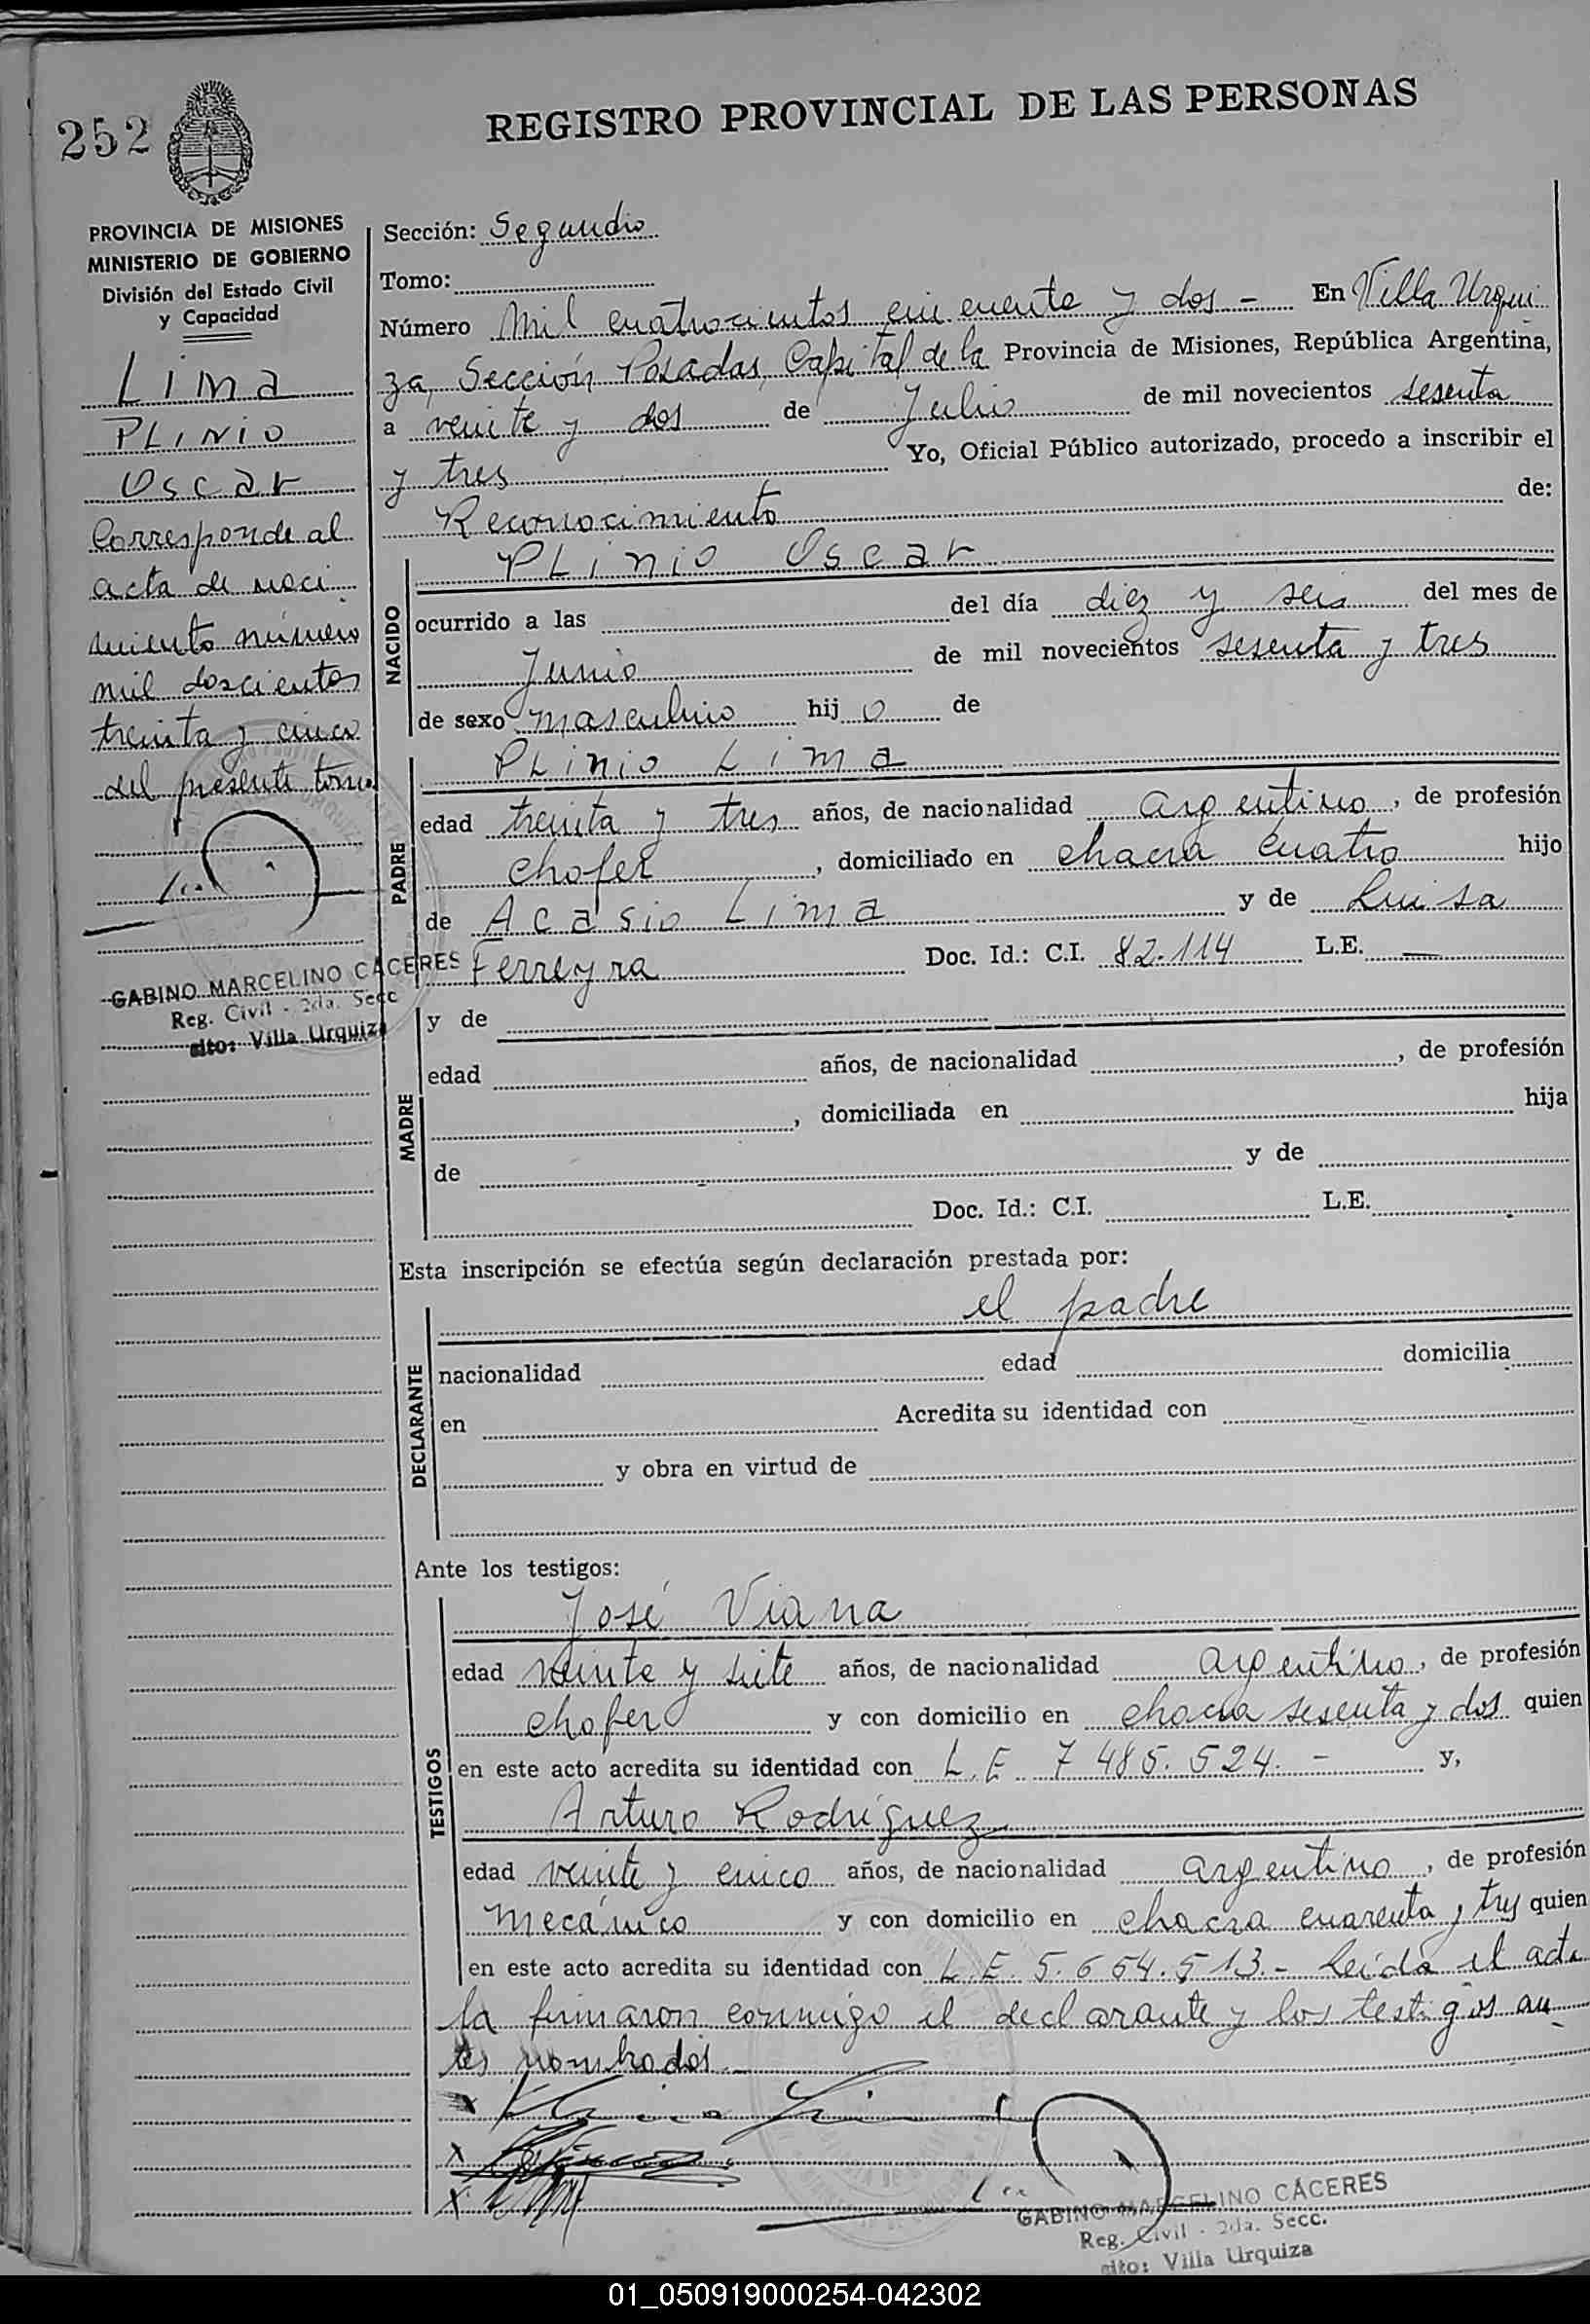 252
REGISTRO PROVINCIAL DE LAS PERSONAS
PROVINCIA DE MISIONES
MINISTERIO DE GOBIERNO
División del Estado Civil
y Capacidad
Lima
PLINIO
Oscar
Corresponde al
acta de naci
miento número
mil doscientos
treinta y cinco
del presente tomo
GABINO MARCELINO CÁCERES
Reg. Civil - 2da. Secc
sito: Villa Urquiza
Sección: Segundio
Tomo:
Número Mil cuatrocientos cincuenta y dos - En Villa Urqui
za, Sección Posadas, Capital de la Provincia de Misiones, República Argentina,
a veinte y dos de Julio de mil novecientos sesenta
y tres Yo, Oficial Público autorizado, procedo a inscribir el
Reconocimiento de:
NACIDO
PLinio Oscar
ocurrido a las del día diez y seis del mes de
Junio de mil novecientos sesenta y tres
de sexo masculino hij o de
PADRE
PLinio Lima
edad treinta y tres años, de nacionalidad argentino, de profesión
chofer, domiciliado en chacra cuatro hijo
de Acasio Lima y de Luisa
Ferreyra Doc. Id.: C.I. 82.114 L.E. —
MADRE
y de
edad años, de nacionalidad , de profesión
, domiciliada en hija
de y de
Doc. Id.: C.I. L.E.
Esta inscripción se efectúa según declaración prestada por:
DECLARANTE
el padre
nacionalidad edad domicilia
en Acredita su identidad con
y obra en virtud de
Ante los testigos:
TESTIGOS
José Viana
edad veinte y siete años, de nacionalidad argentino, de profesión
chofer y con domicilio en chacra sesenta y dos quien
en este acto acredita su identidad con L.E. 7 485.524.- y,
Arturo Rodríguez
edad veinte y cinco años, de nacionalidad argentino, de profesión
mecánico y con domicilio en chacra cuarenta y tres quien
en este acto acredita su identidad con L.E. 5.654.513.- Leída el acta
la firmaron conmigo el declarante y los testigos an
tes nombrados.
GABINO MARCELINO CÁCERES
Reg. Civil - 2da. Secc.
sito: Villa Urquiza
01_050919000254-042302